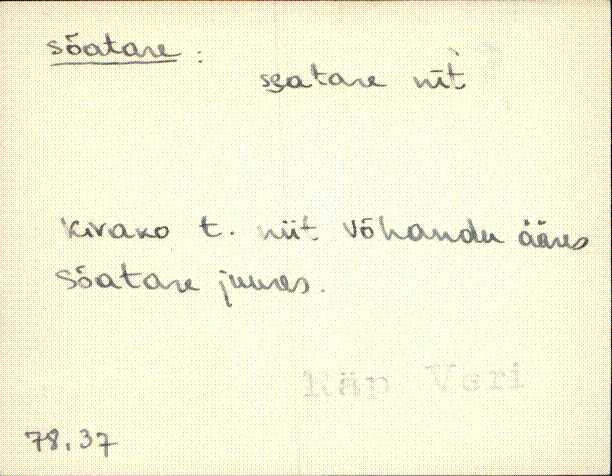 sõatare :
sęatare nīt̀
Kivako t. niit Võhandu ääres
Sõatare juures.
Räp Veri
78.37